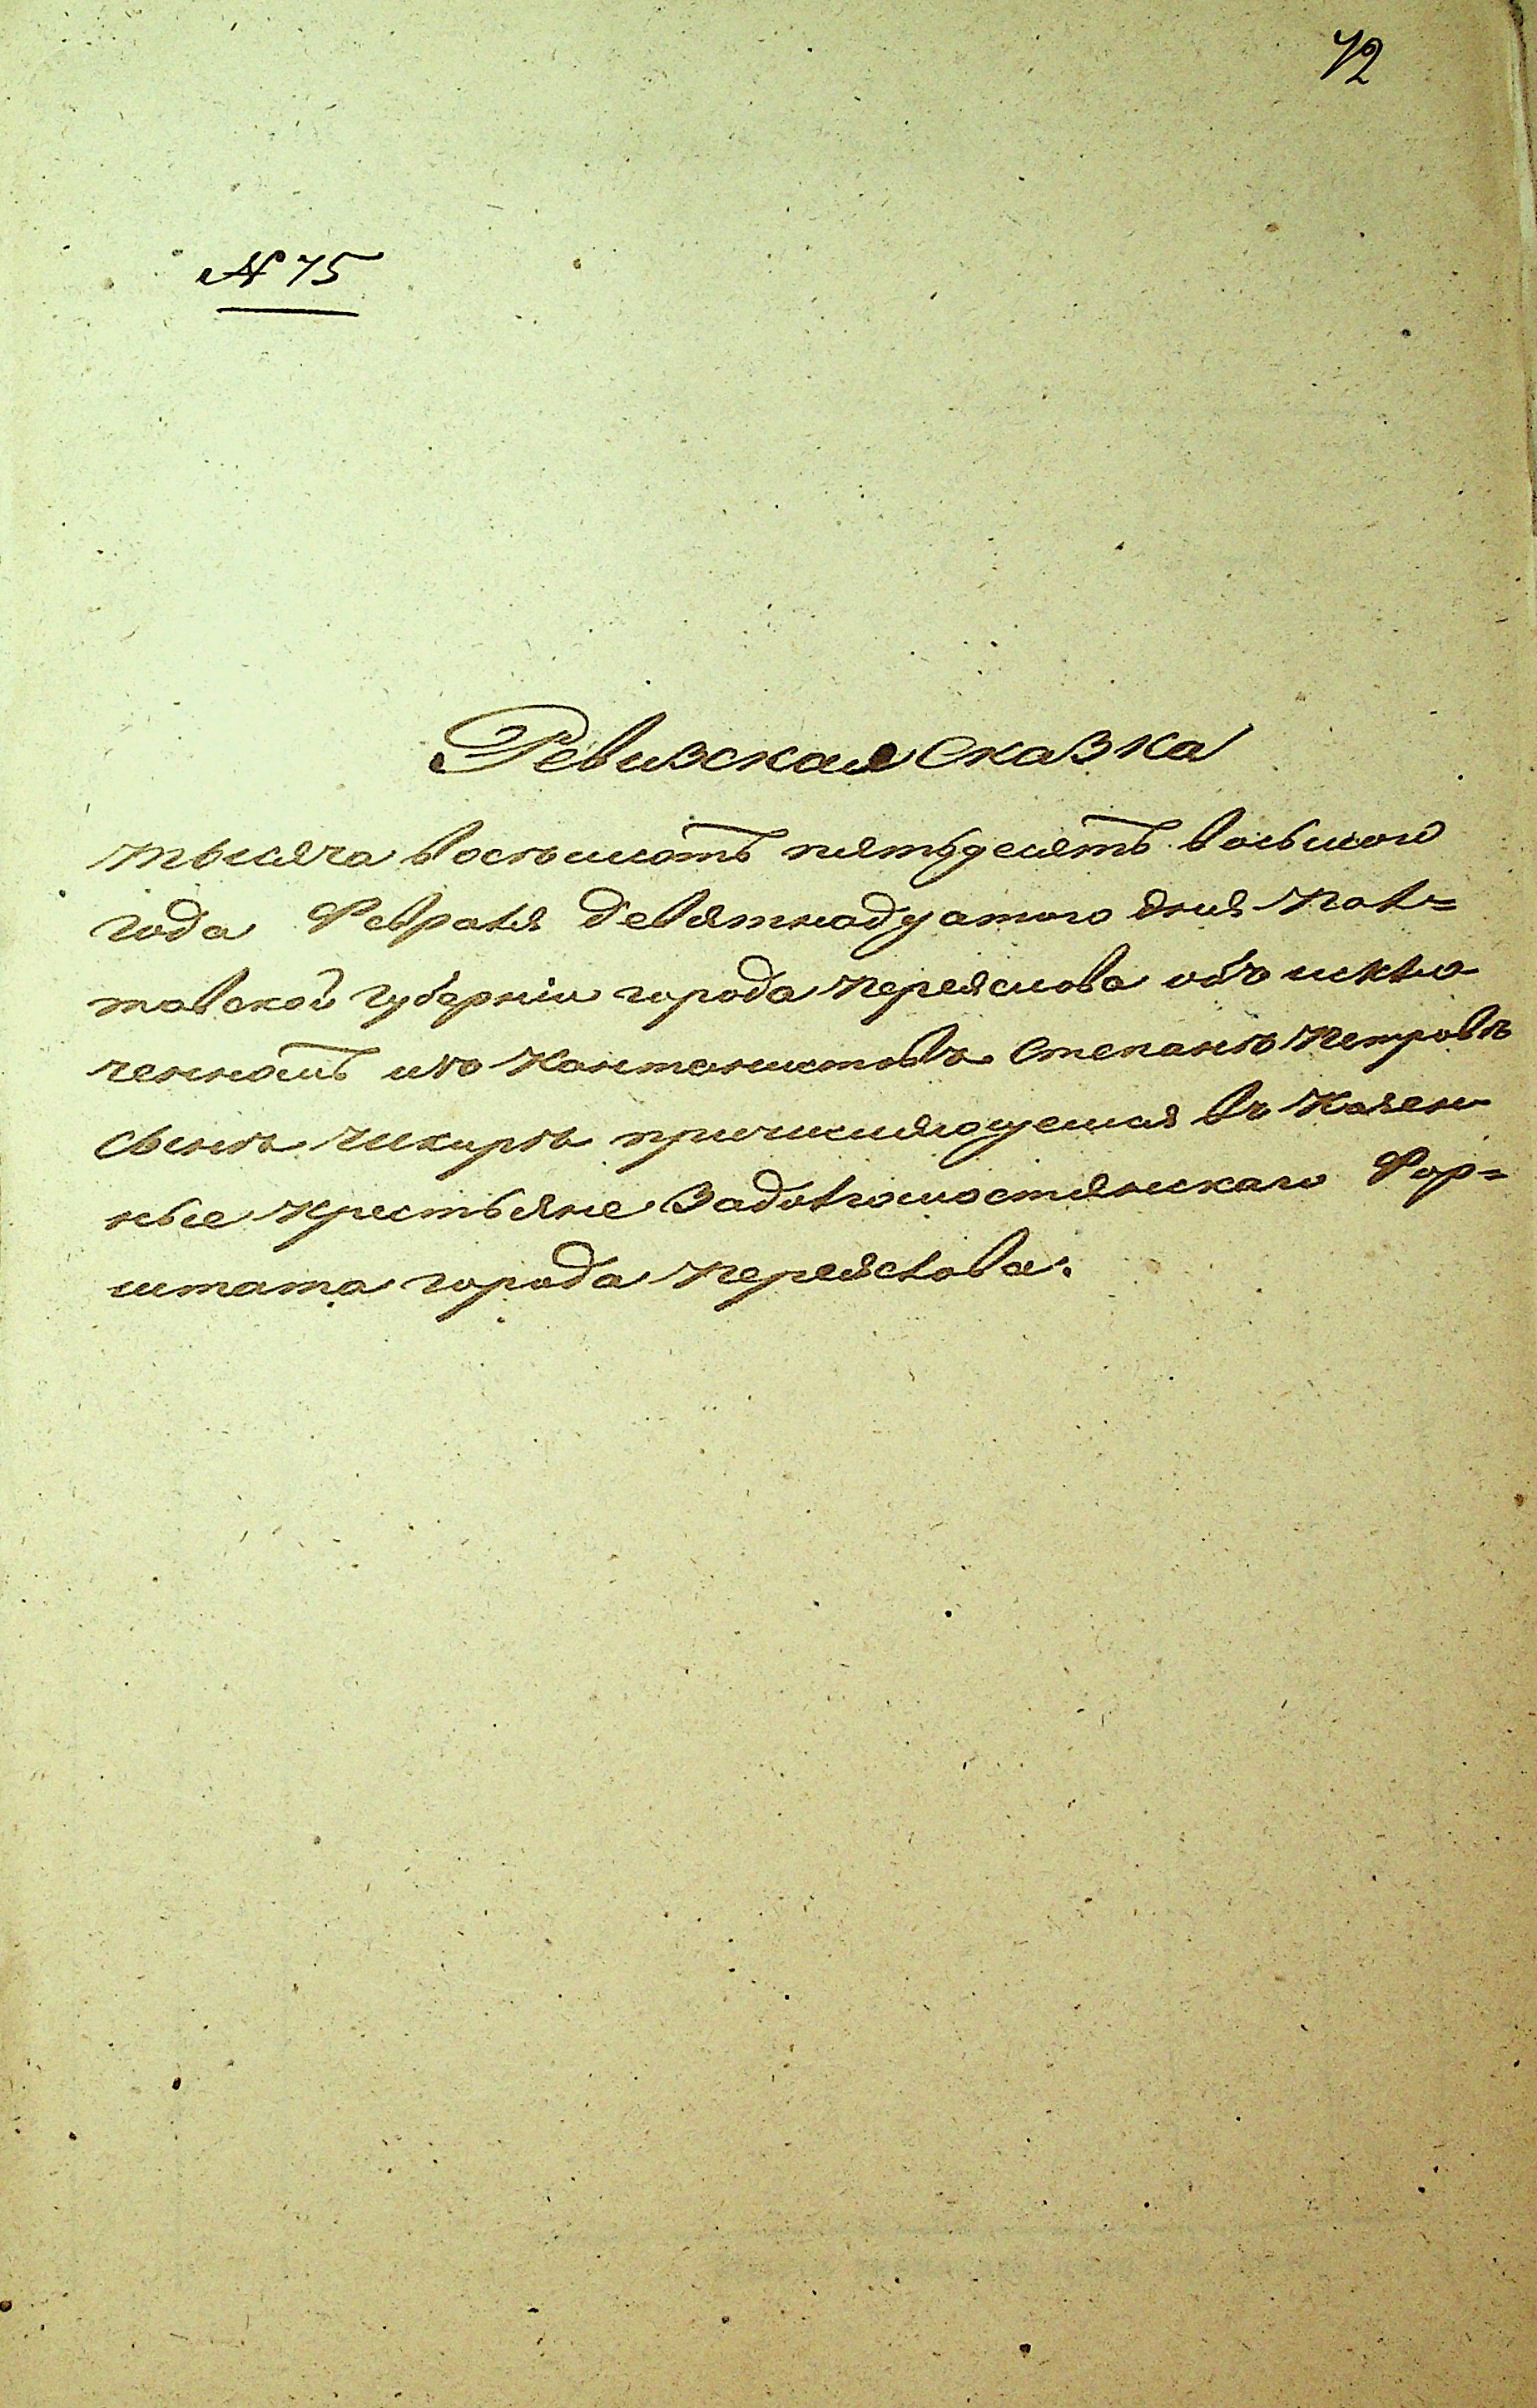 72
№ 75
Ревизская Сказка
тысяча восемьсотъ пятьдесятъ восьмого
года Февраля девятнадцатого дня Пол=
тавской губерніи города Переяслова объ исклю
ченномъ изъ Кантонистовъ Степанъ Петровъ
сынъ причисляющемся въ Казен
ные крестьяне Задолгомостянскаго Фор=
штата города Переяслова.